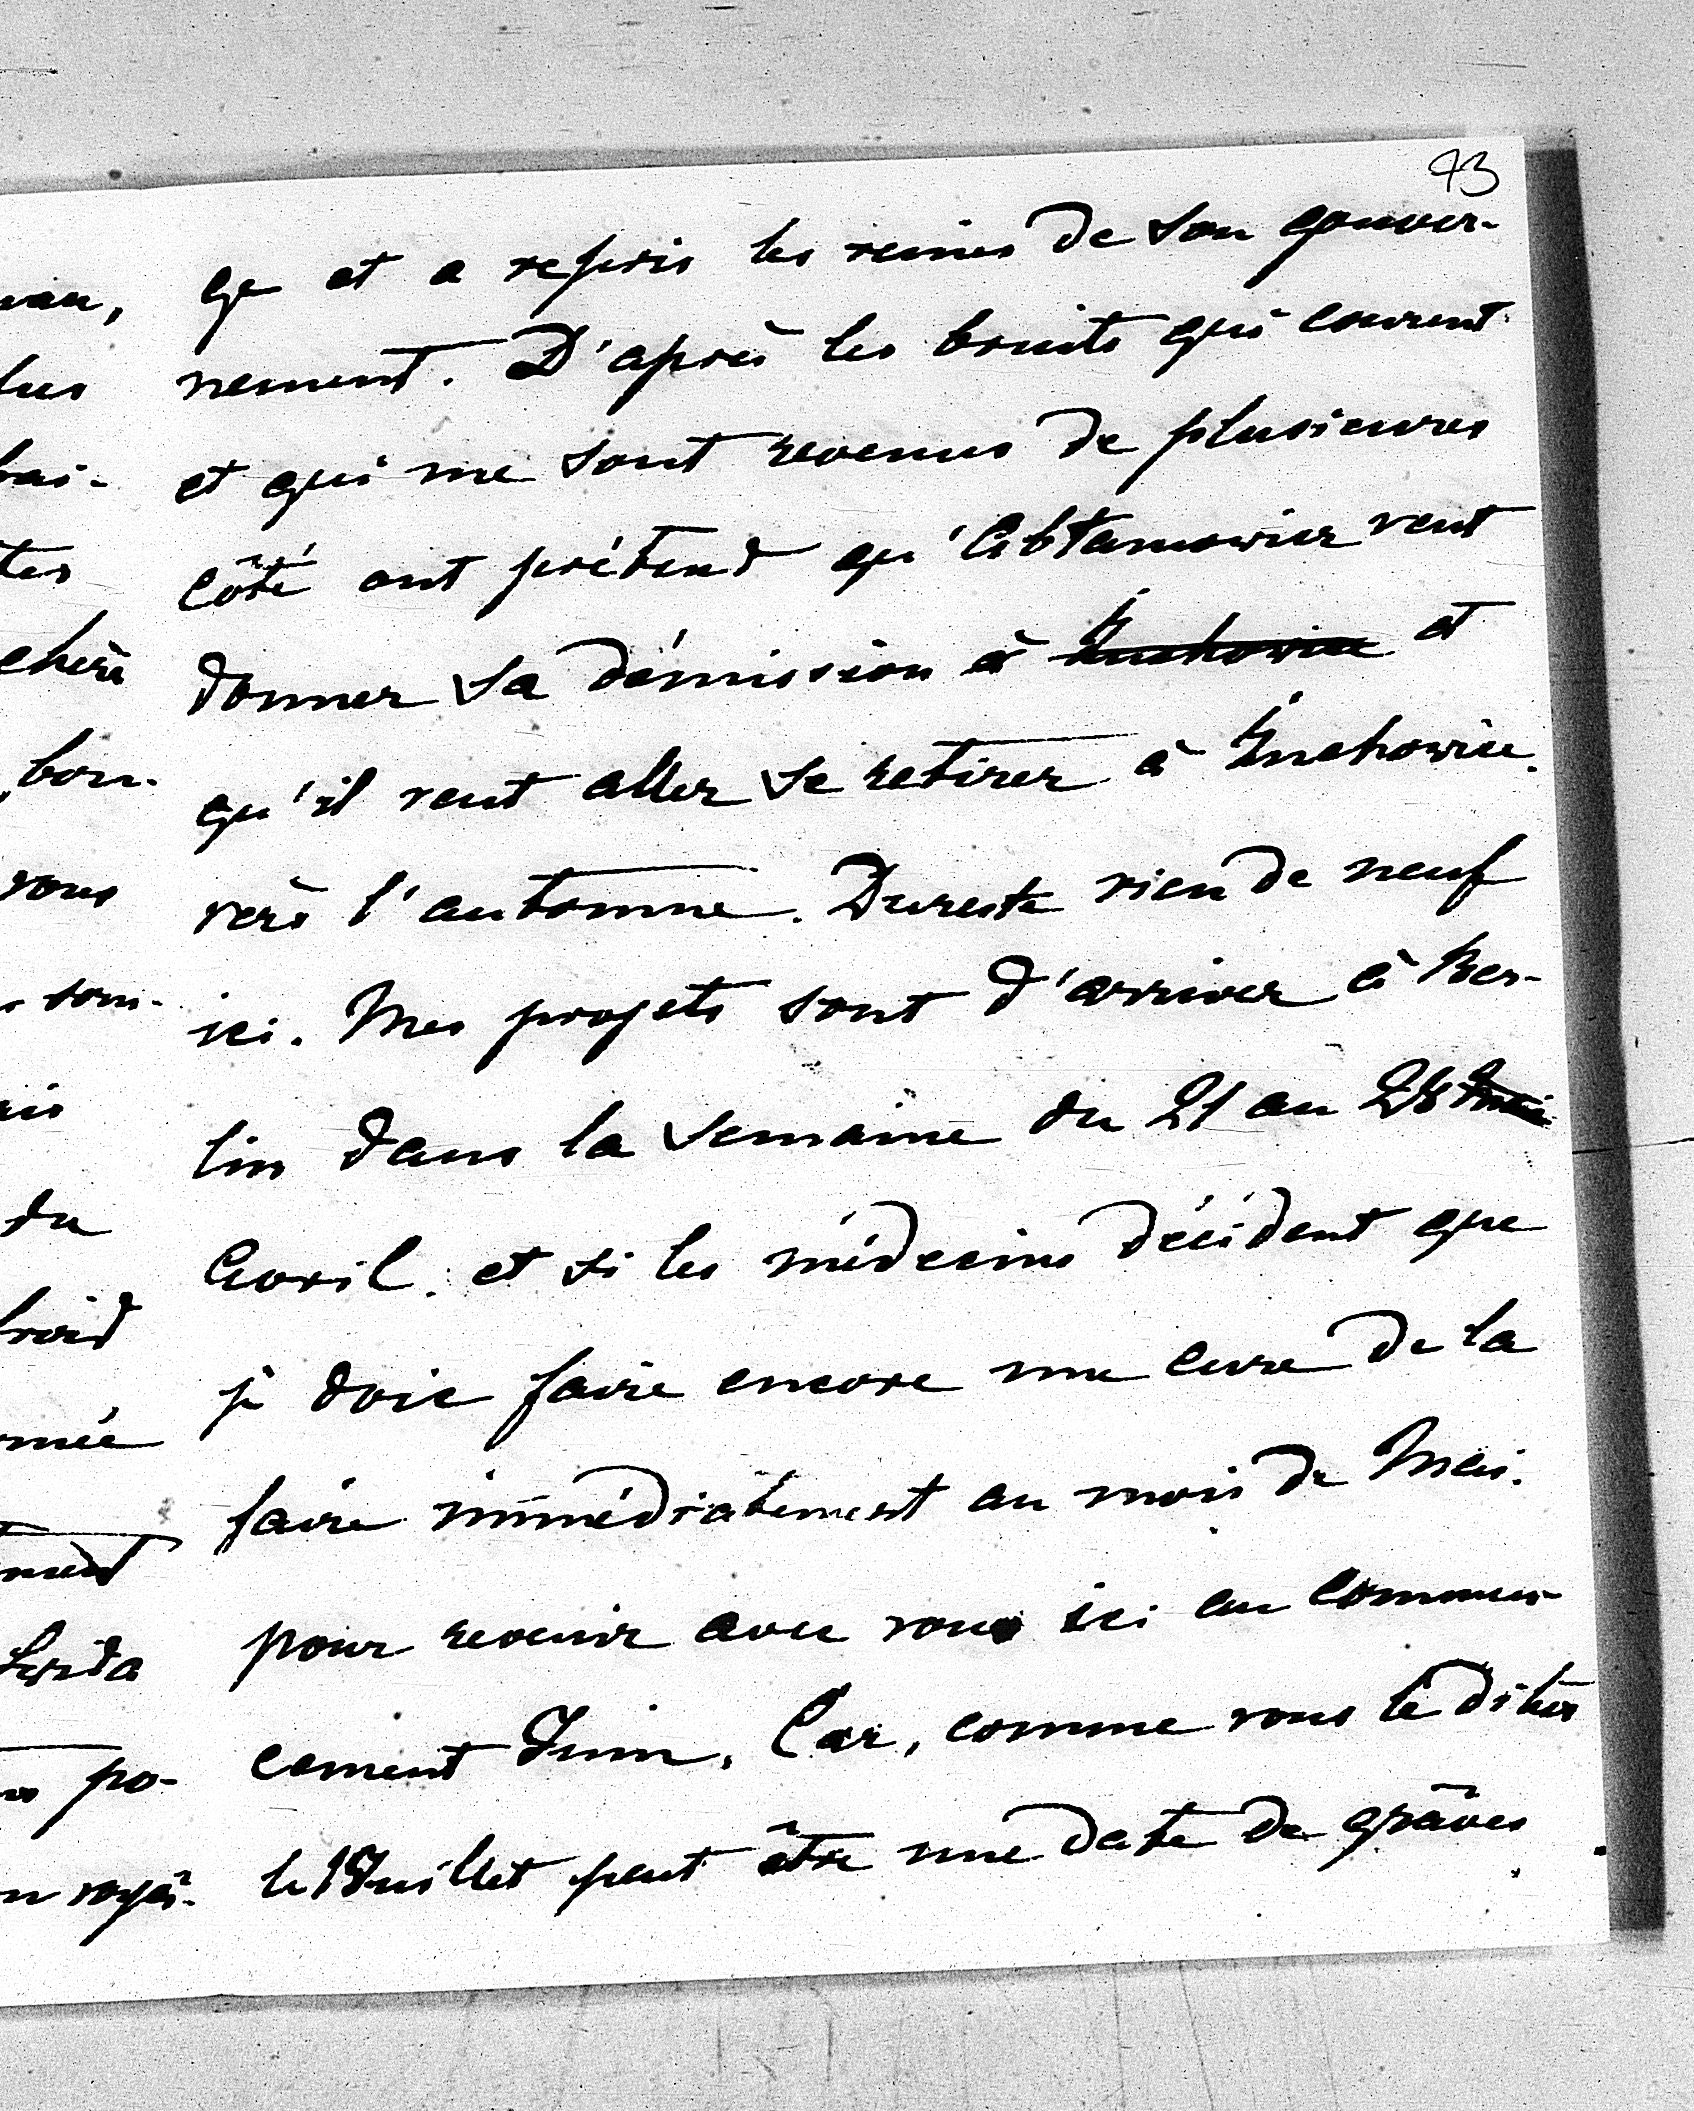 93
ge et a repris les reines de son gouver-
nement. D'après les bruits qui courent
et qui me sont revenus de plusieures
côté ont prétend qu'
veut
donner sa démission à
et
qu'il veut aller se retirer à
vers l'automne. Dureste rien de neuf
ici. Mes projets sont d'arriver à Ber-
lin dans la semaine du 21 au 28
Avril. et si les médecins décident que
je dois faire encore une cure de la
faire immédiatement au mois de Mai.
pour revenir avec vous ici au commen-
cement Juin. Car, comme vous le dites
le 1 Juillet peut être une date de grâves
du
po-